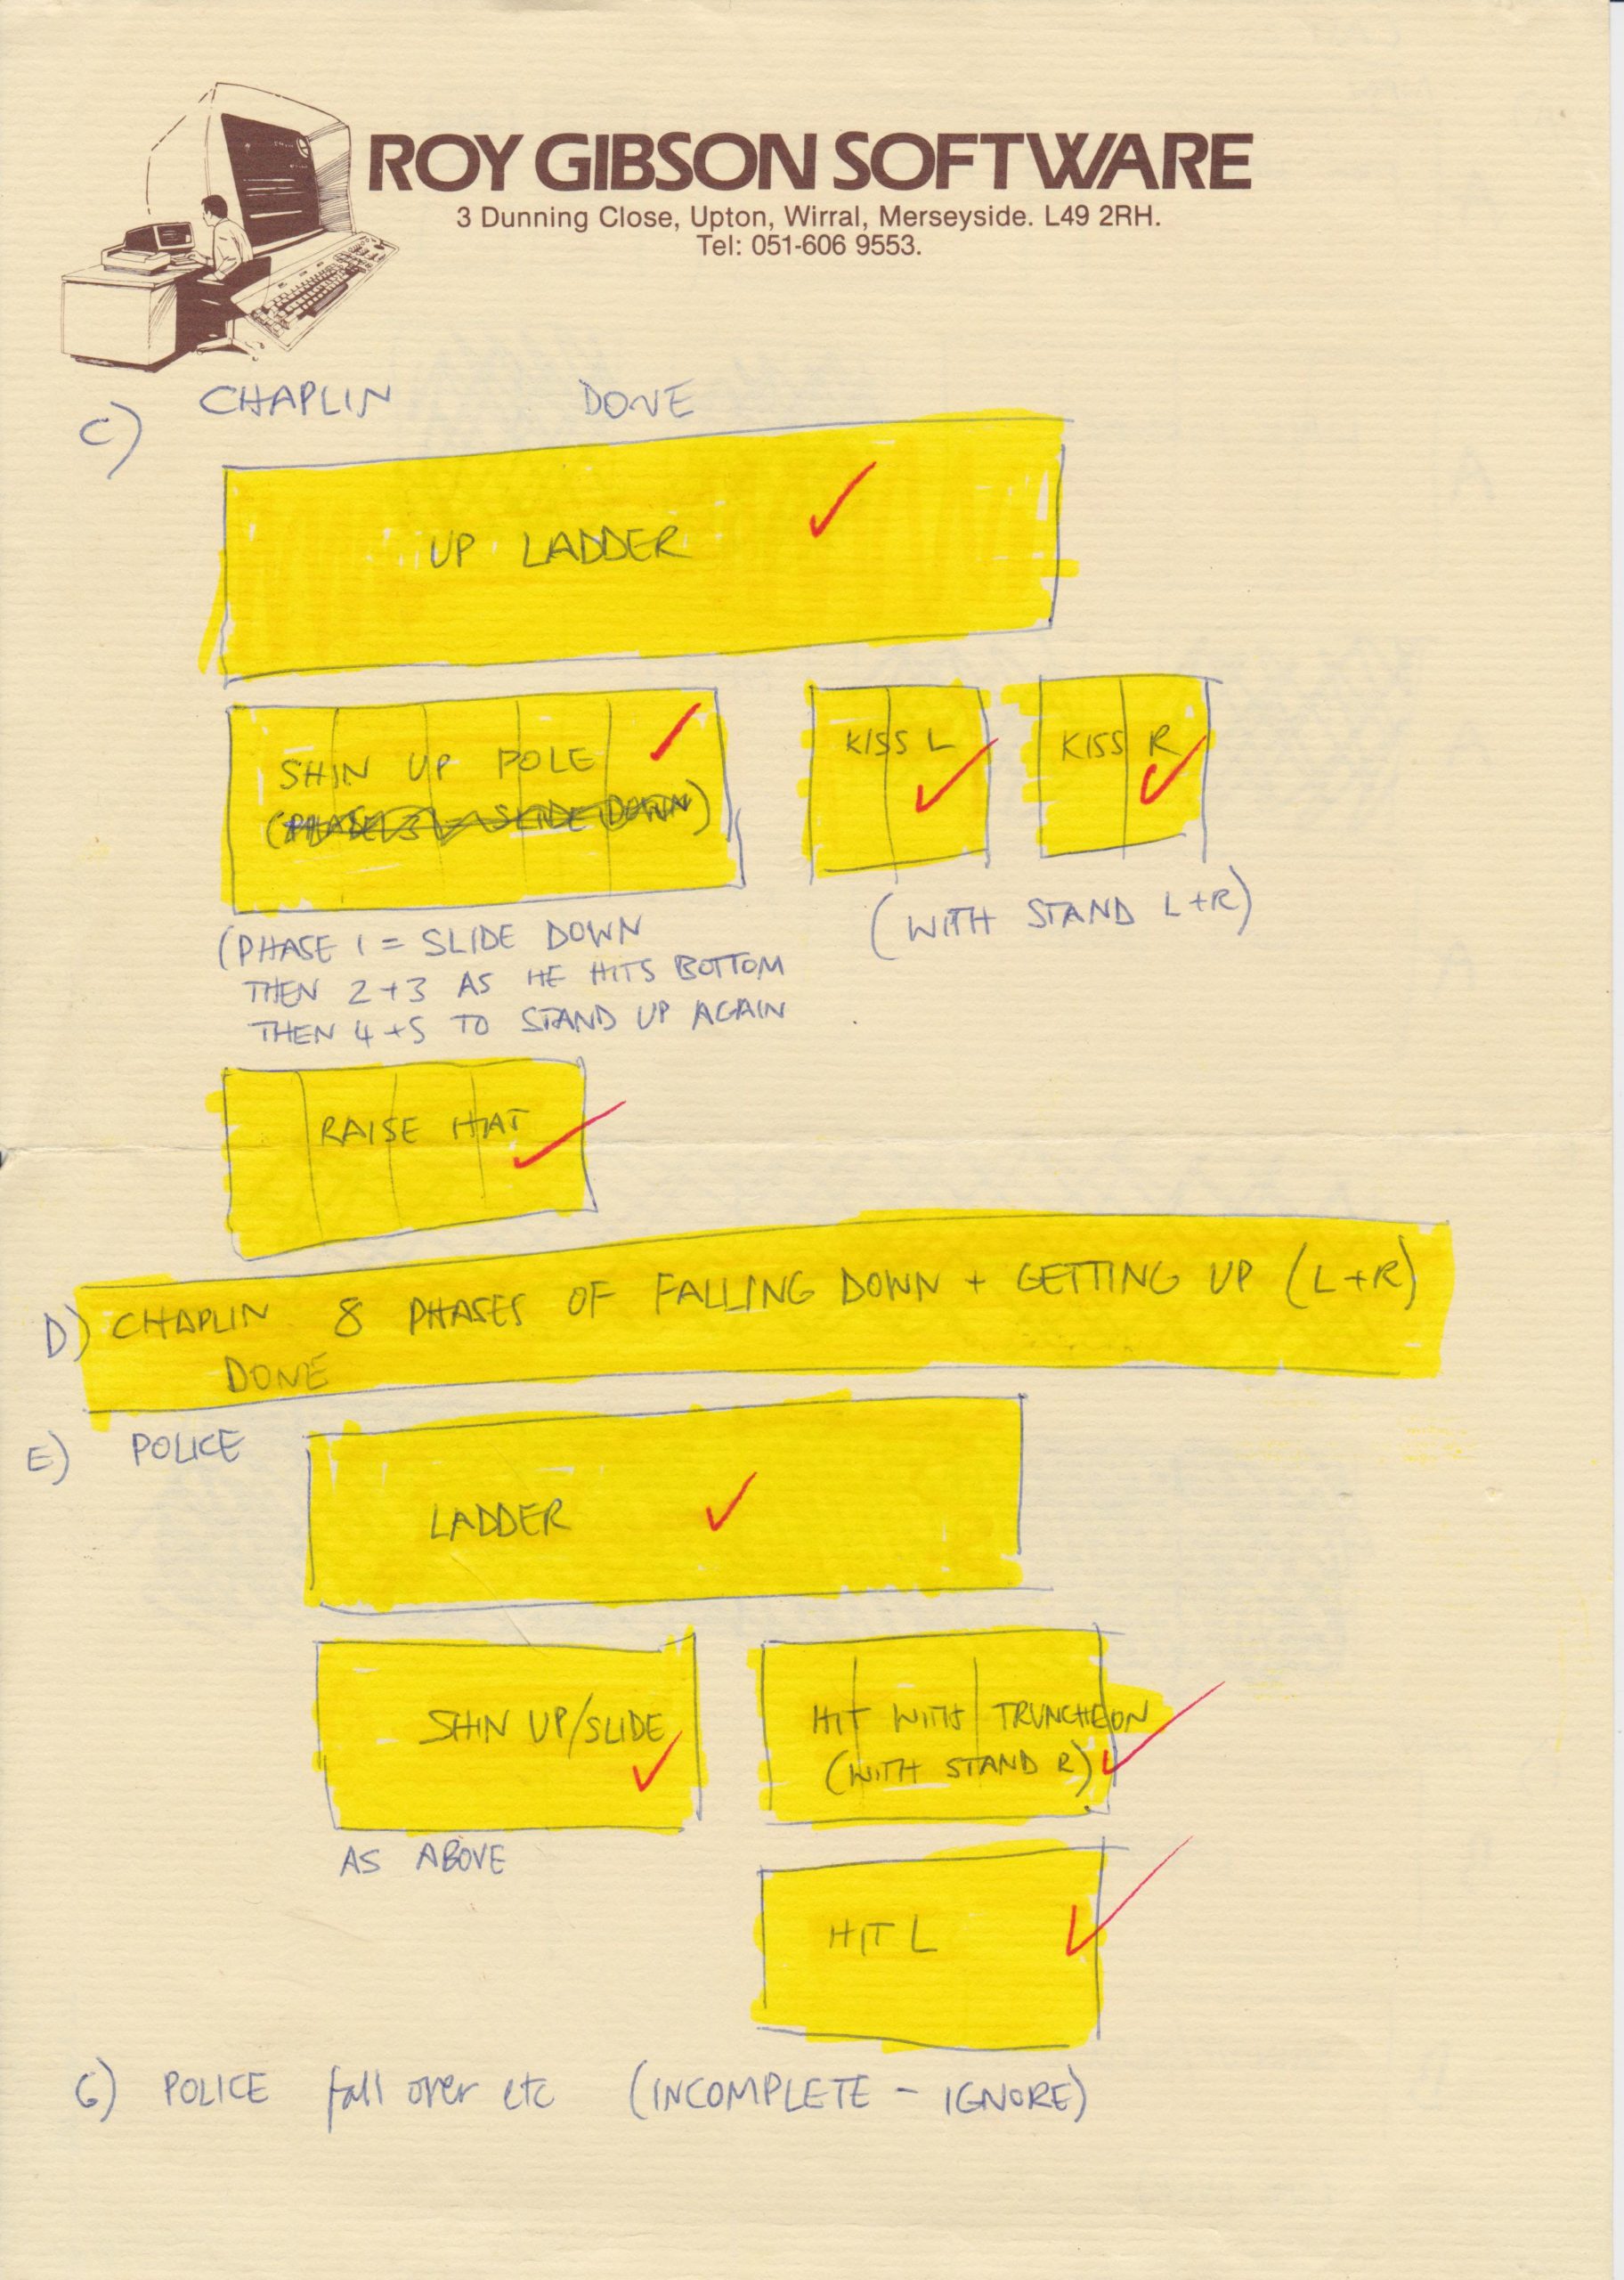 ROY GIBSON SOFTWARE
3 Dunning Close, Upton, Wirral, Merseyside. L49 2RH.
Tel: 051-606 9553.
C) CHAPLIN DONE
UP LADDER
SHIN UP POLE
(PHASE 3 = SLIDE DOWN)
KISS L
KISS R
(WITH STAND L+R)
(PHASE 1 = SLIDE DOWN
THEN 2+3 AS HE HITS BOTTOM
THEN 4+5 TO STAND UP AGAIN
RAISE HAT
D) CHAPLIN 8 PHASES OF FALLING DOWN + GETTING UP (L+R)
DONE
E) POLICE
LADDER
SHIN UP/SLIDE
AS ABOVE
HIT WITH TRUNCHEON
(WITH STAND R)
HIT L
G) POLICE fall over etc (INCOMPLETE - IGNORE)